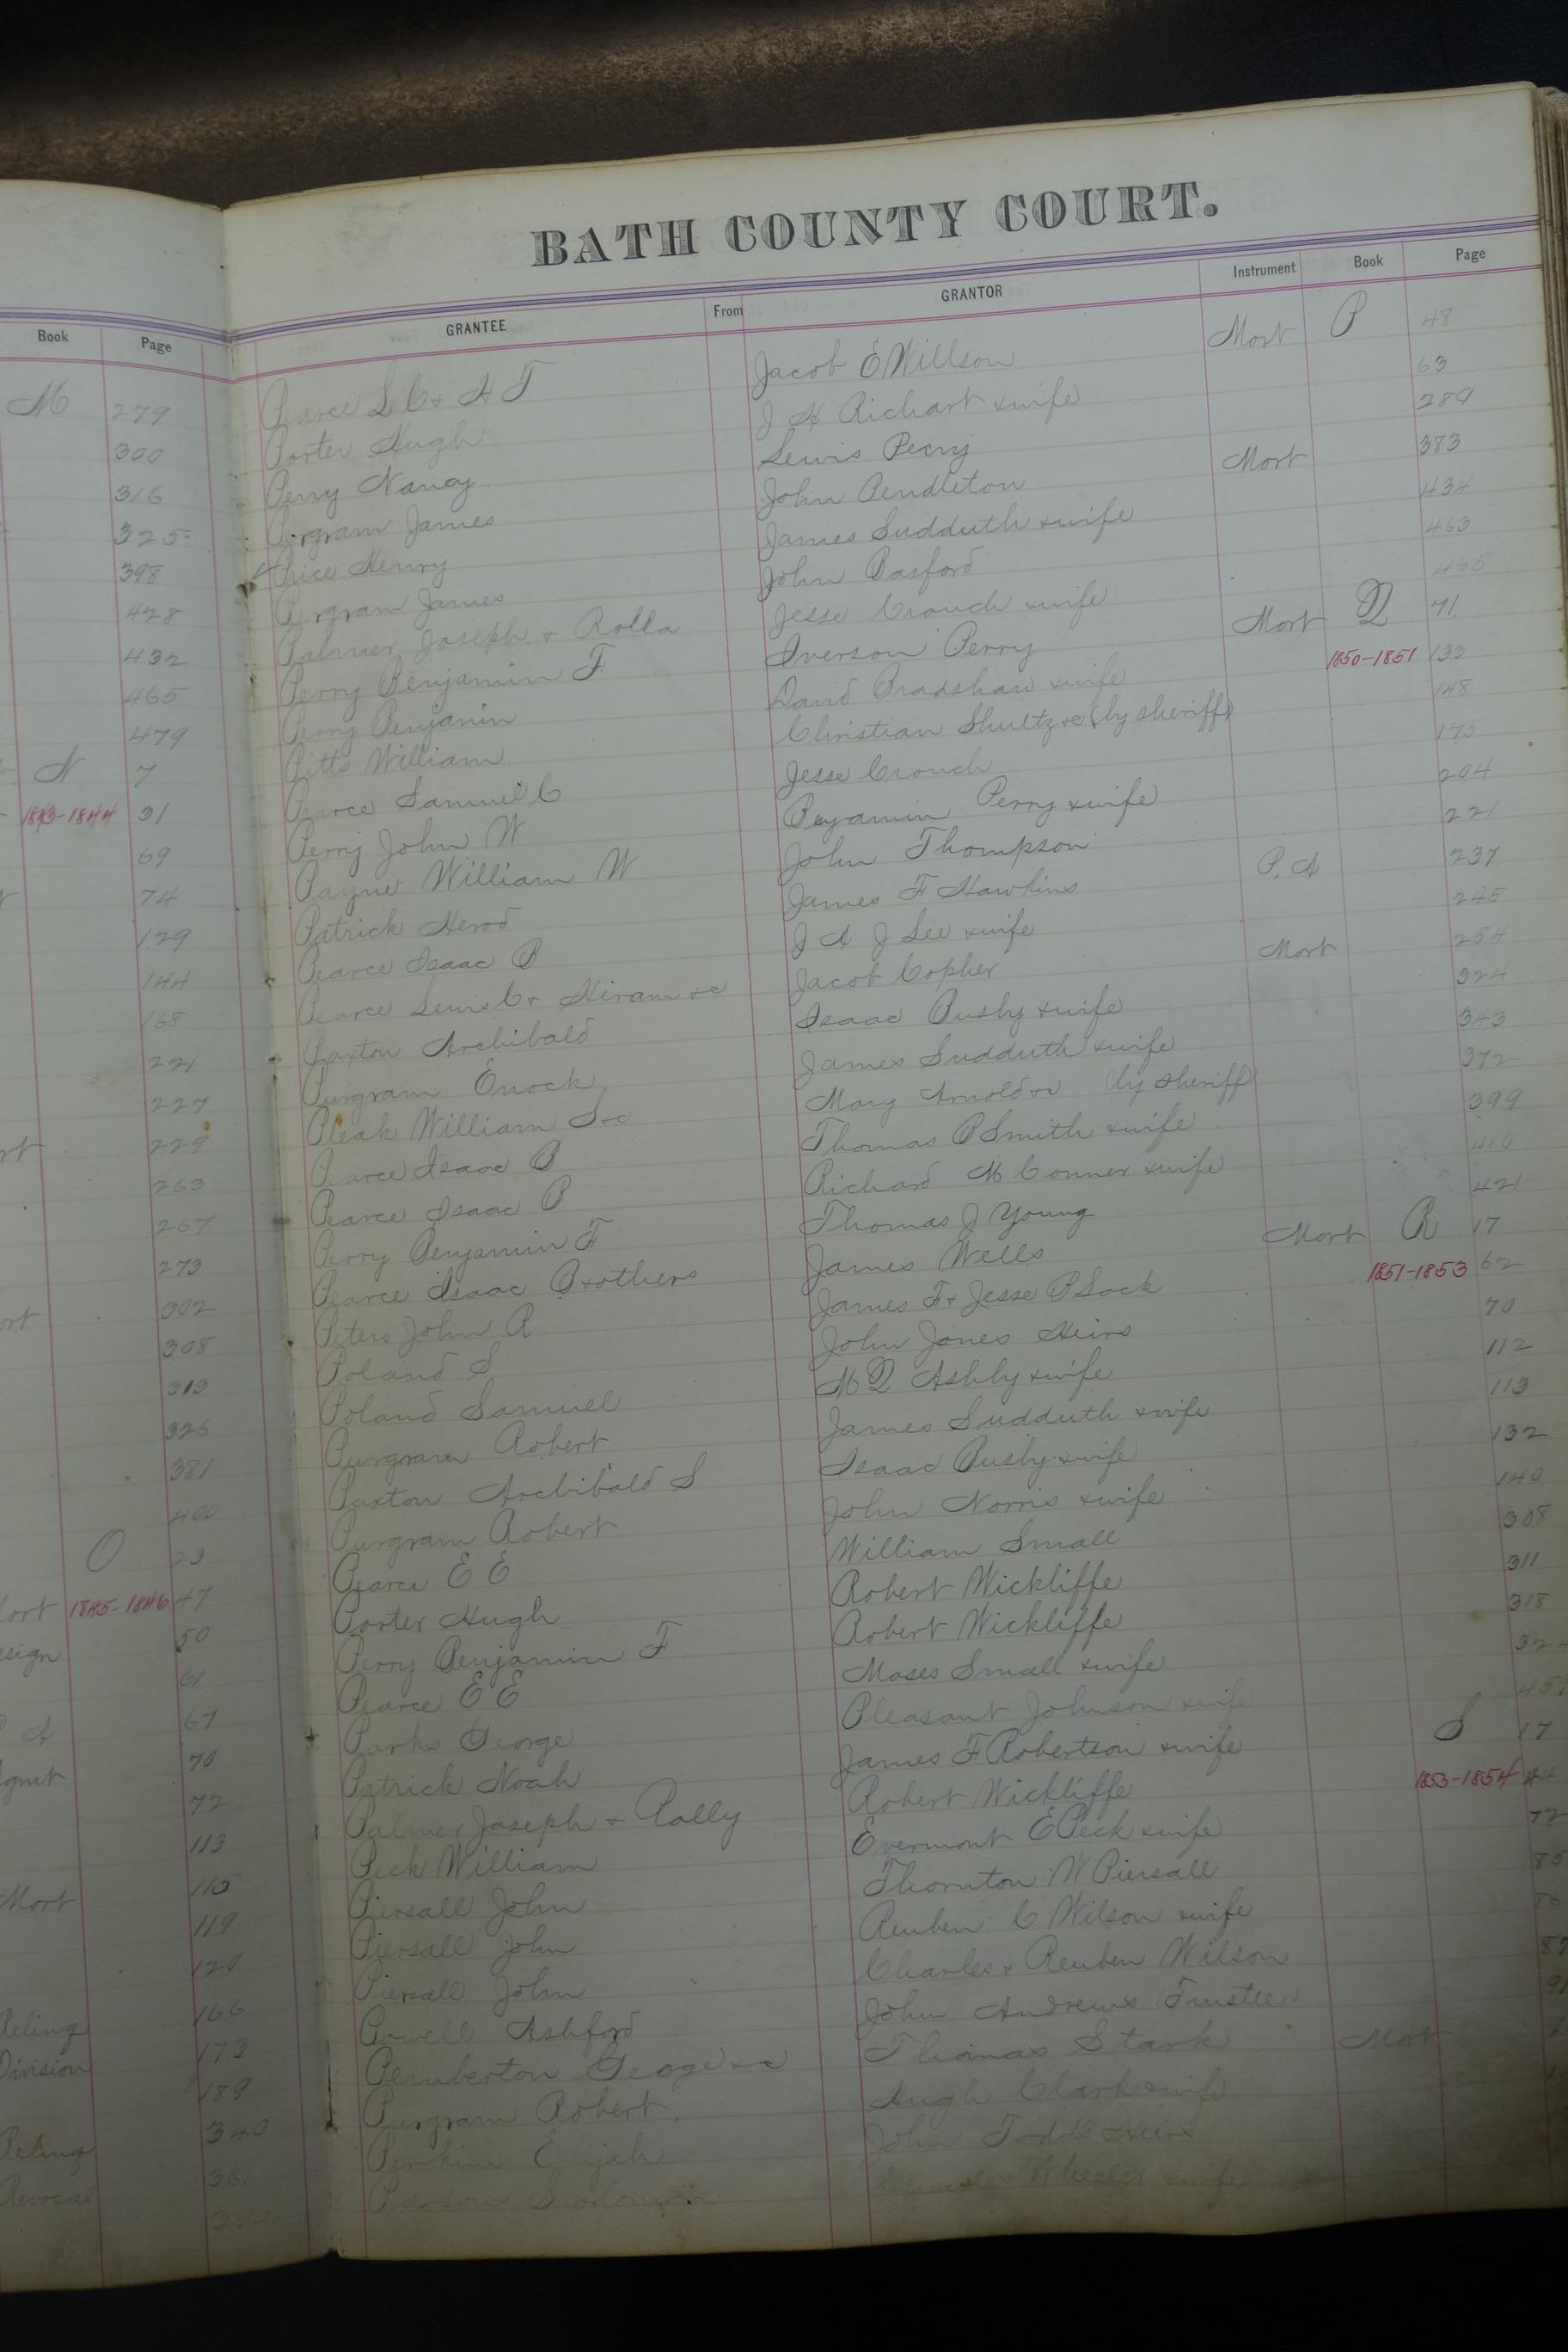 Book Page
M 279
300
316
325
398
428
432
465
479
N 7
1843-1844 31
69
74
129
144
168
221
227
229
263
267
273
302
308
313
326
381
400
O 23
1845-1846 47
50
61
67
70
72
113
Mort 115
119
120
166
Reling 173
Division 189
340
Reling
BATH COUNTY COURT.
GRANTEE From GRANTOR Instrument Book Page
Pearce L C & H T Jacob E Willson Mort P 48
Porter Hugh J H Richart & wife 63
Perry Nancy Lewis Perry 289
Purgram James John Pendleton Mort 383
Price Henry James Sudduth & wife 434
Purgram James John Basford 463
Palmer Joseph & Rolla Jesse Crouch & wife 465
Perry Benjamin F Iverson Perry Mort Q 71
Perry Benjamin David Bradshaw & wife 1850-1851 133
Pitts William Christian Shultz &c (by sheriff) 148
Pearce Samuel C Jesse Crouch 175
Perry John W Benjamin Perry & wife 204
Payne William W John Thompson 221
Patrick Herod James F Hawkins P. A 237
Pearce Isaac B J A J Lee & wife 245
Pearce Lewis C & Hiram &c Jacob Copher Mort 254
Paxton Archibald Isaac Busby & wife 324
Purgram Enock James Sudduth & wife 343
Pleak William S &c Mary Arnold &c (by sheriff) 372
Pearce Isaac B Thomas P Smith & wife 399
Pearce Isaac B Richard M Conner & wife 410
Perry Benjamin F Thomas J Young 421
Pearce Isaac Brothers James Wells Mort R 17
Peters John R James F & Jesse Block 1851-1853 62
Poland S John Jones Heirs 70
Poland Samuel M Q Ashby & wife 112
Purgram Robert James Sudduth & wife 113
Paxton Archibald S Isaac Busby & wife 132
Purgram Robert John Norris & wife 140
Pearce E E William Small 308
Porter Hugh Robert Wickliffe 311
Perry Benjamin F Robert Wickliffe 318
Pearce E E Moses Small & wife 322
Parks George Pleasant Johnson & wife
Patrick Noah James F Robertson & wife S 17
Palmer Joseph & Rolly Robert Wickliffe 1853-1854 44
Peck William Evermont E Peck & wife 72
Piersall John Thornton W Piersall 85
Piersall John Reuben C Wilson & wife
Piersall John Charles & Reuben Wilson
Powell Ashford John Andrews Trustee
Pemberton George &c Thomas Stark Mort
Purgram Robert Hugh Clark & wife
Perkins Elijah John Todds Heirs
Wheeler & wife